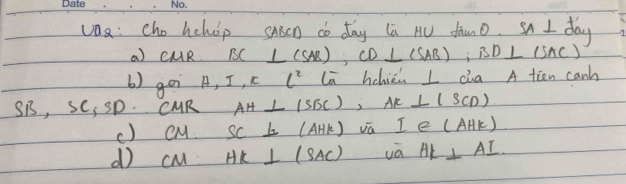 Date . . . . No.
VD2: Cho hchóp SABCD có đáy là HV tâm O. SA ⊥ đáy
a) CMR BC ⊥ (SAB) ; CD ⊥ (SAB) ; BD ⊥ (SAC)
b) gọi H, I, K l² là hchiếu ⊥ của A trên cạnh
SB, SC, SD. CMR AH ⊥ (SBC) ; AK ⊥ (SCD)
c) CM. SC ⊥ (AHK) và I ∈ (AHK)
d) CM. HK ⊥ (SAC) và HK ⊥ AI